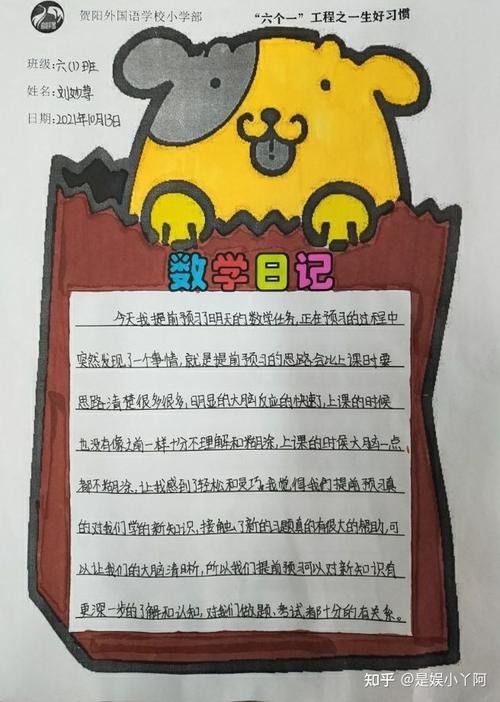 贺阳外国语学校小学部
“六个一”工程之一生好习惯
班级:六(1)班
姓名:刘妙尊
日期:2021年10月13日
数学日记
今天我提前预习了明天的数学任务,正在预习的过程中
突然发现了一个事情,就是提前预习的思路会比上课时要
思路清楚很多很多,明显的大脑反应的快速,上课的时候
也没有像之前一样十分不理解和糊涂,上课的时侯大脑一点
都不糊涂,让我感到了轻松和灵巧。我觉得我们提前预习真
的对我们学的新知识,接触了新的习题真的有很大的帮助,可
以让我们的大脑清晰,所以我们提前预习可以对新知识有
更深一步的了解和认知,对我们做题、考试都十分的有关系。
知乎 @是娱小丫阿